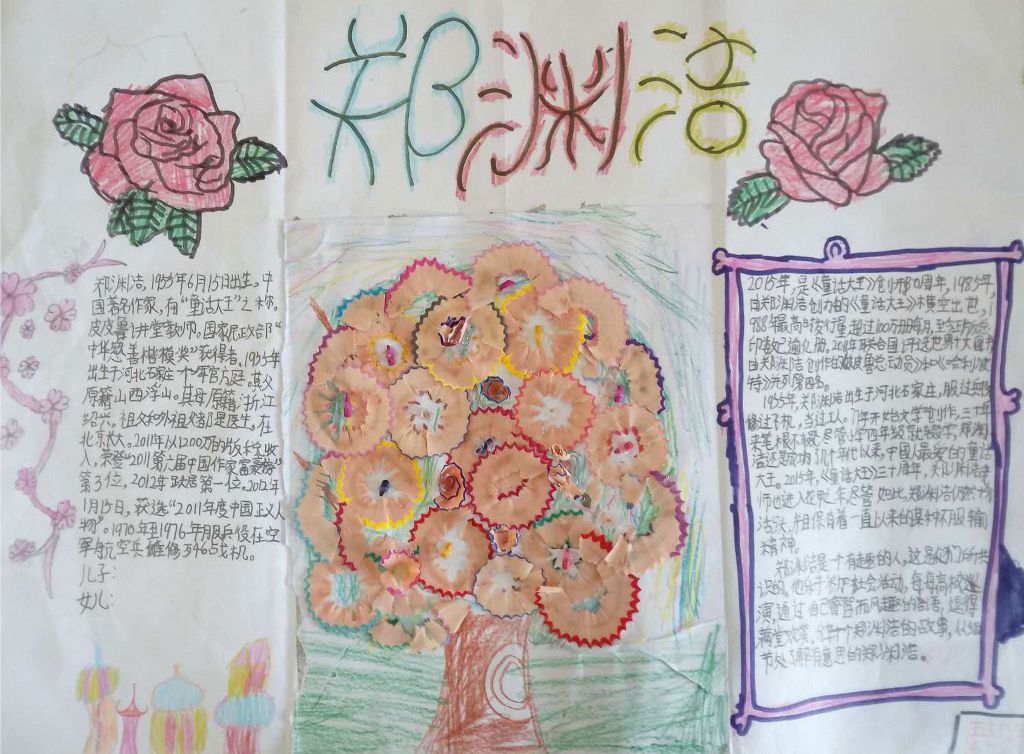 郑渊洁
郑渊洁,1955年6月15日出生,中
国著名作家,有“童话大王”之称。
皮皮鲁讲堂教师,国家民政部“
中华慈善楷模奖”获得者,1955年
出生于河北石家庄一个军官家庭。其父
原籍山西浮山。其母原籍浙江
绍兴。祖父和外祖父都是医生。在
北京长大。2011年以1200万的版税收
入,荣登“2011第六届中国作家富豪榜”
第3位,2012年跃居第一位。2012年
1月15日,获选“2011年度中国正义人
物”。1970年至1976年服兵役在空
军航空兵维修歼6战机。
儿子:
女儿:
2015年,是《童话大王》创刊30周年,1985年
由郑渊洁创办的《童话大王》横空出世,
988年最高时发行量超过100万册每月,至今
印数已逾亿册。2011年联合国
由郑渊洁创作的《皮皮鲁总动员》和《哈利波
特》并列第四名。
1955年,郑渊洁出生于河北石家庄,服过兵役
修过飞机,当过工人。77年开始文学创作,三十年
来笔根不辍。尽管小学四年级就辍学,郑渊
洁还是成为几个年代以来,中国人最爱的童话
大王。2015年,《童话大王》三十周年,郑渊洁老
师也进入花甲年,尽管如此,郑渊洁仍然
活跃,并且保有着一直以来的某种不服输
精神。
郑渊洁是个有趣的人,这是他们所共
识的。他乐于参加社会活动,每每高校巡
演,通过自己睿智而风趣的言语,逗得
满堂欢笑,分享个郑渊洁的故事,从细
节处了解有意思的郑渊洁。